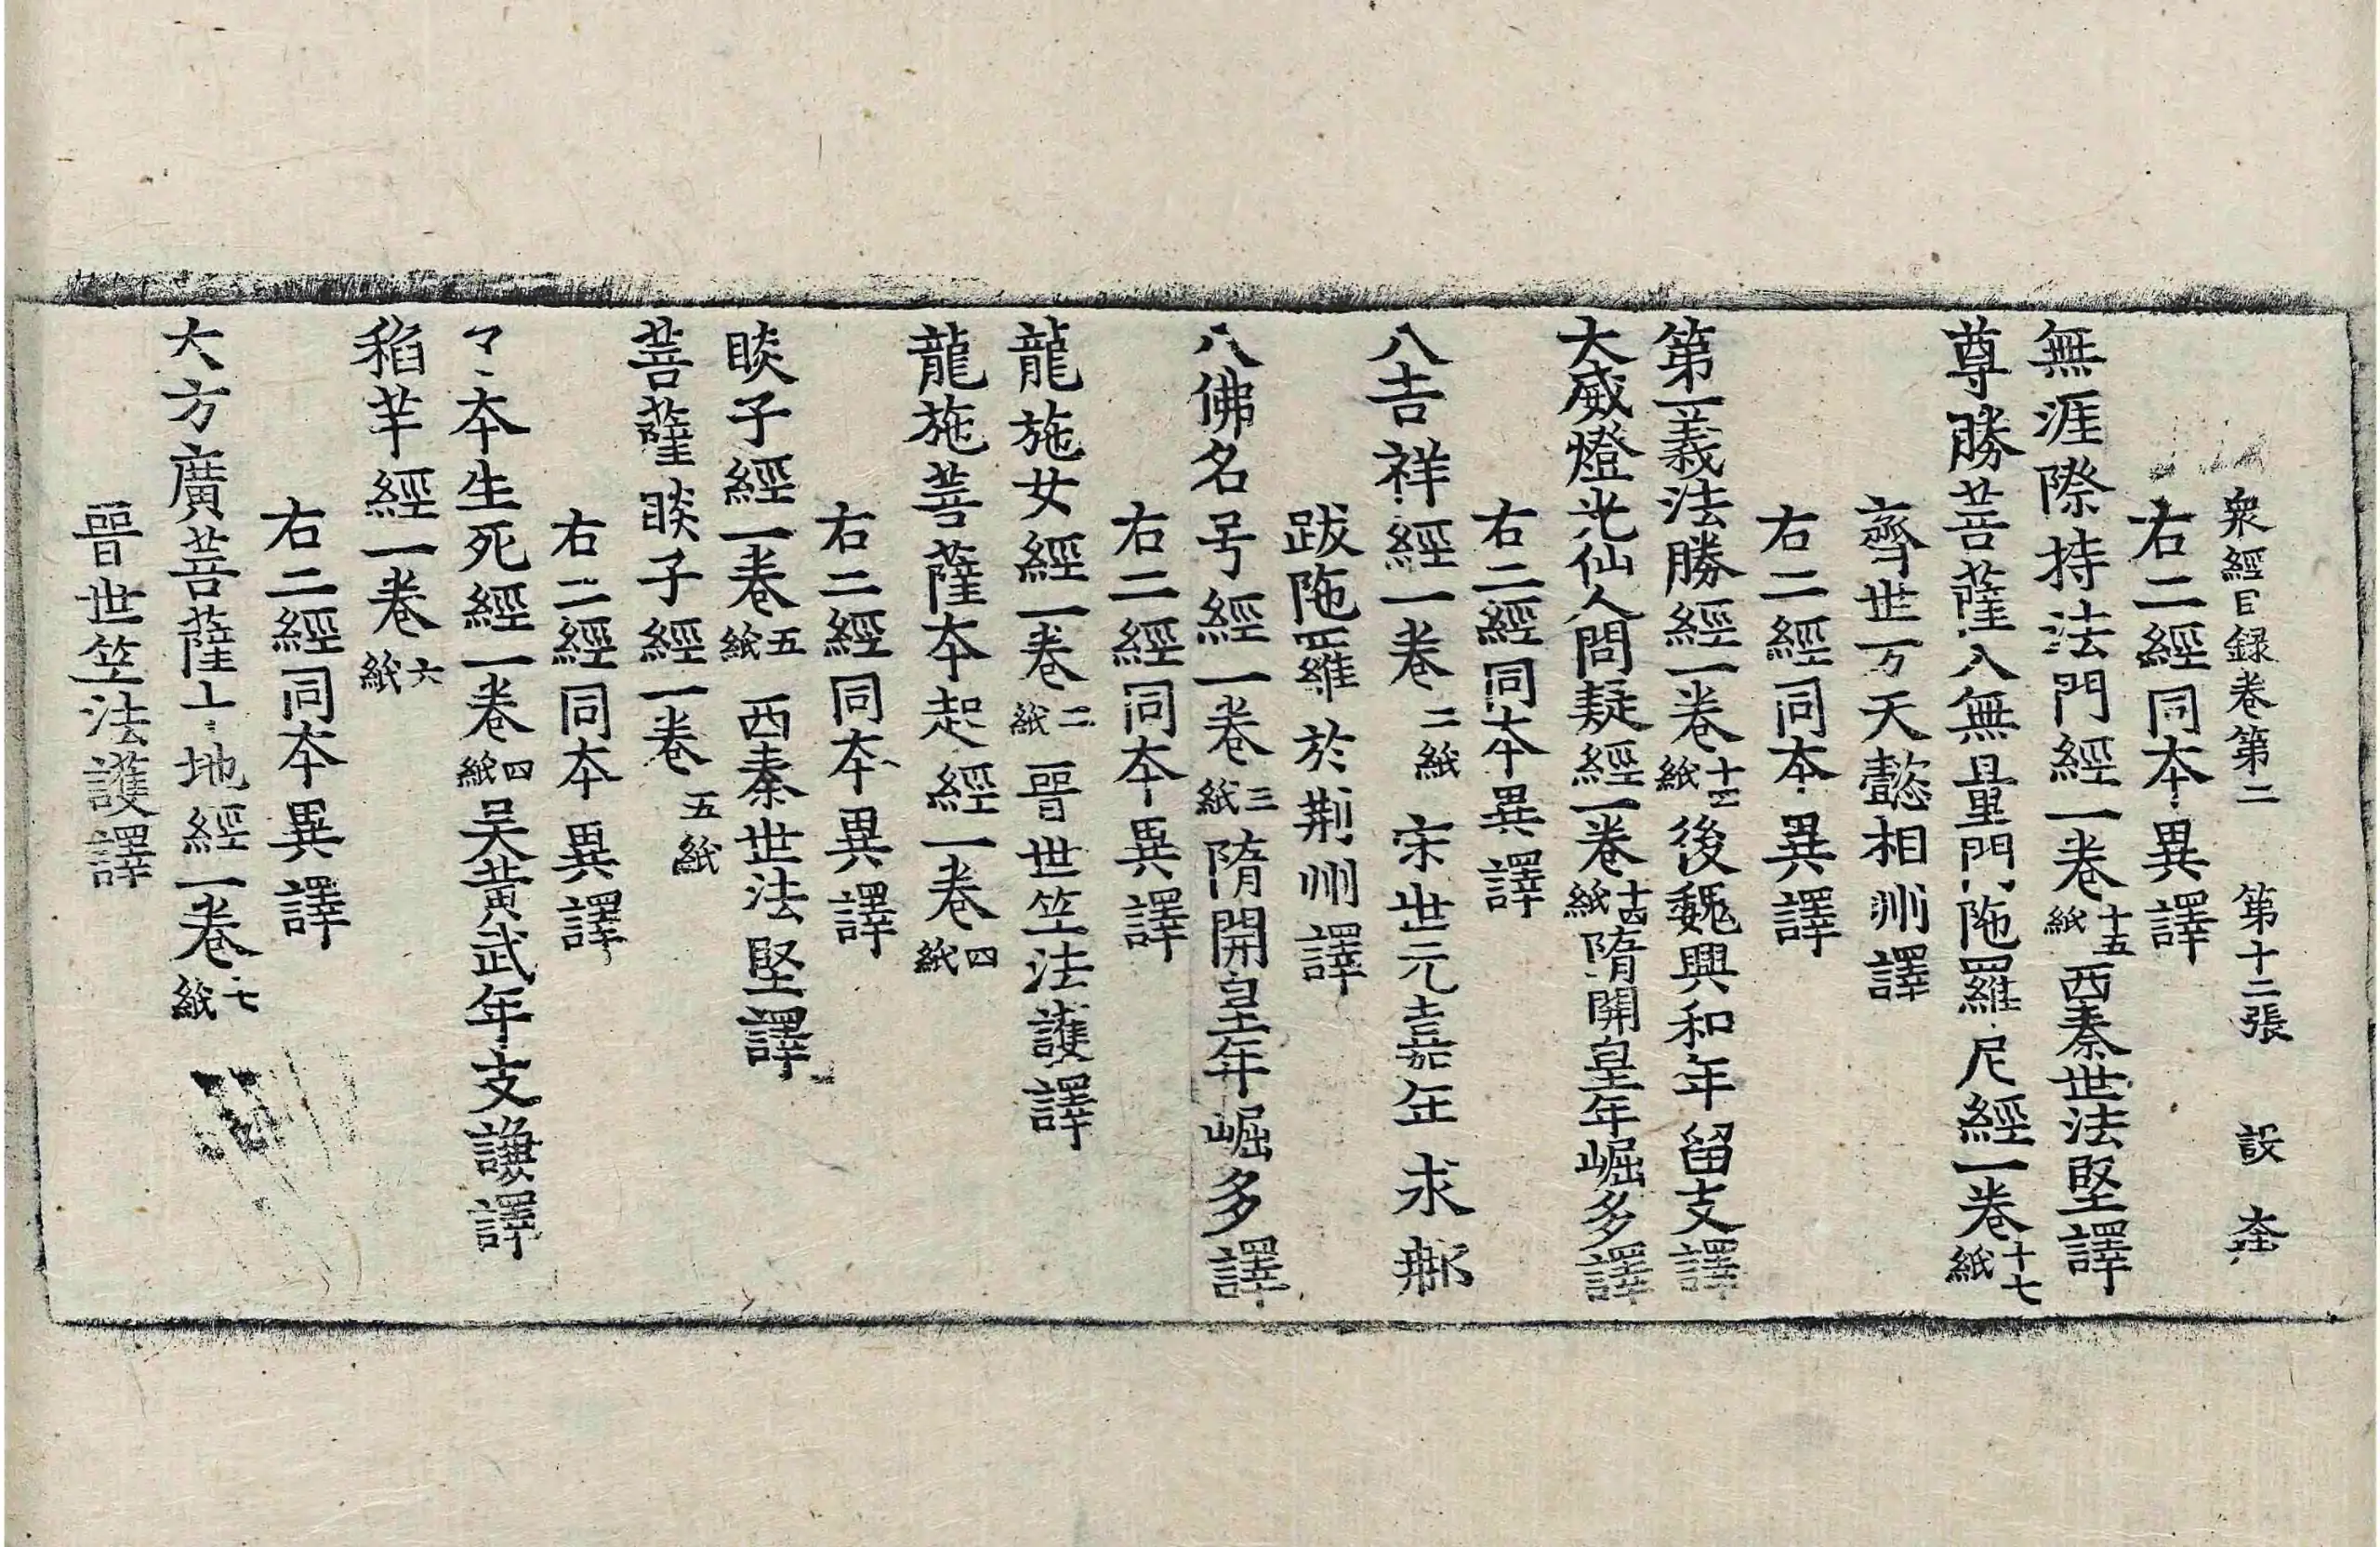 衆經目録卷第二　第十二張　設　夲
右二經同夲異譯
無涯際持法門經一卷十五紙西秦世法堅譯
尊勝菩薩入無量門陁羅尼經一卷十七紙
齊世万天懿相州譯
右二經同夲異譯
第一義法勝經一卷十三紙後魏興和年留支譯
大威燈光仙人問疑經一卷十四紙隋開皇年崛多譯
右二經同夲異譯
八吉祥經一卷二紙宋世元嘉年求那
跋陁羅於荆州譯
八佛名号經一卷三紙隋開皇年崛多譯
右二經同夲異譯
龍施女經一卷二紙晉世竺法護譯
龍施菩薩夲起經一卷四紙
右二經同夲異譯
睒子經一卷五紙西秦世法堅譯
菩薩睒子經一卷五紙
右二經同夲異譯
了夲生死經一卷四紙吴黄武年支謙譯
稻芉經一卷六紙
右二經同夲異譯
大方廣菩薩十地經一卷七紙
晉世竺法護譯